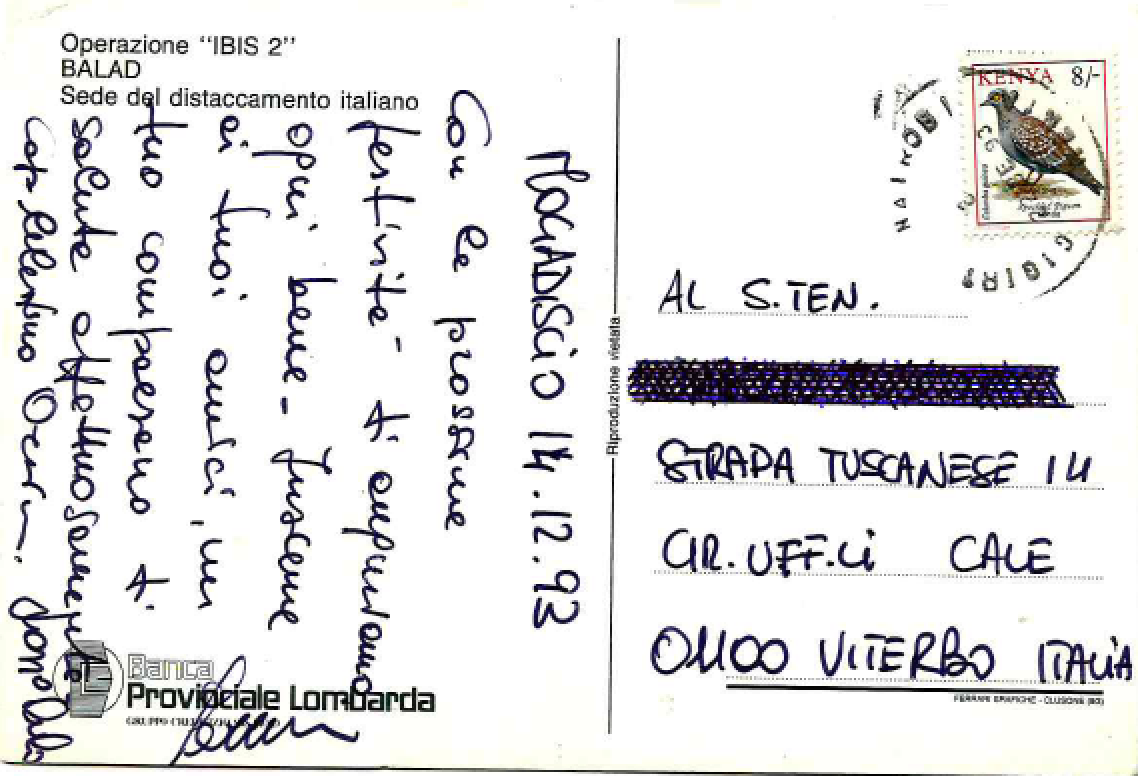 Operazione "IBIS 2"
BALAD
Sede del distaccamento italiano
MOGADISCIO 14.12.93
Con le prossime
festività - ti auguriamo
ogni bene - Insieme
ai tuoi amici, un
tuo compaesano ti
saluta affettuosamente
Cap.
Banca
Provinciale Lombarda
GRUPPO
Riproduzione vietata
KENYA 8/-
Columba guinea
Speckled Pigeon
NAIROBI
AL S.TEN.
STRADA TUSCANESE 14
CIR.UFF.Li CALE
01100 VITERBO ITALIA
FERRARI GRAFICHE - CLUSONE (BG)